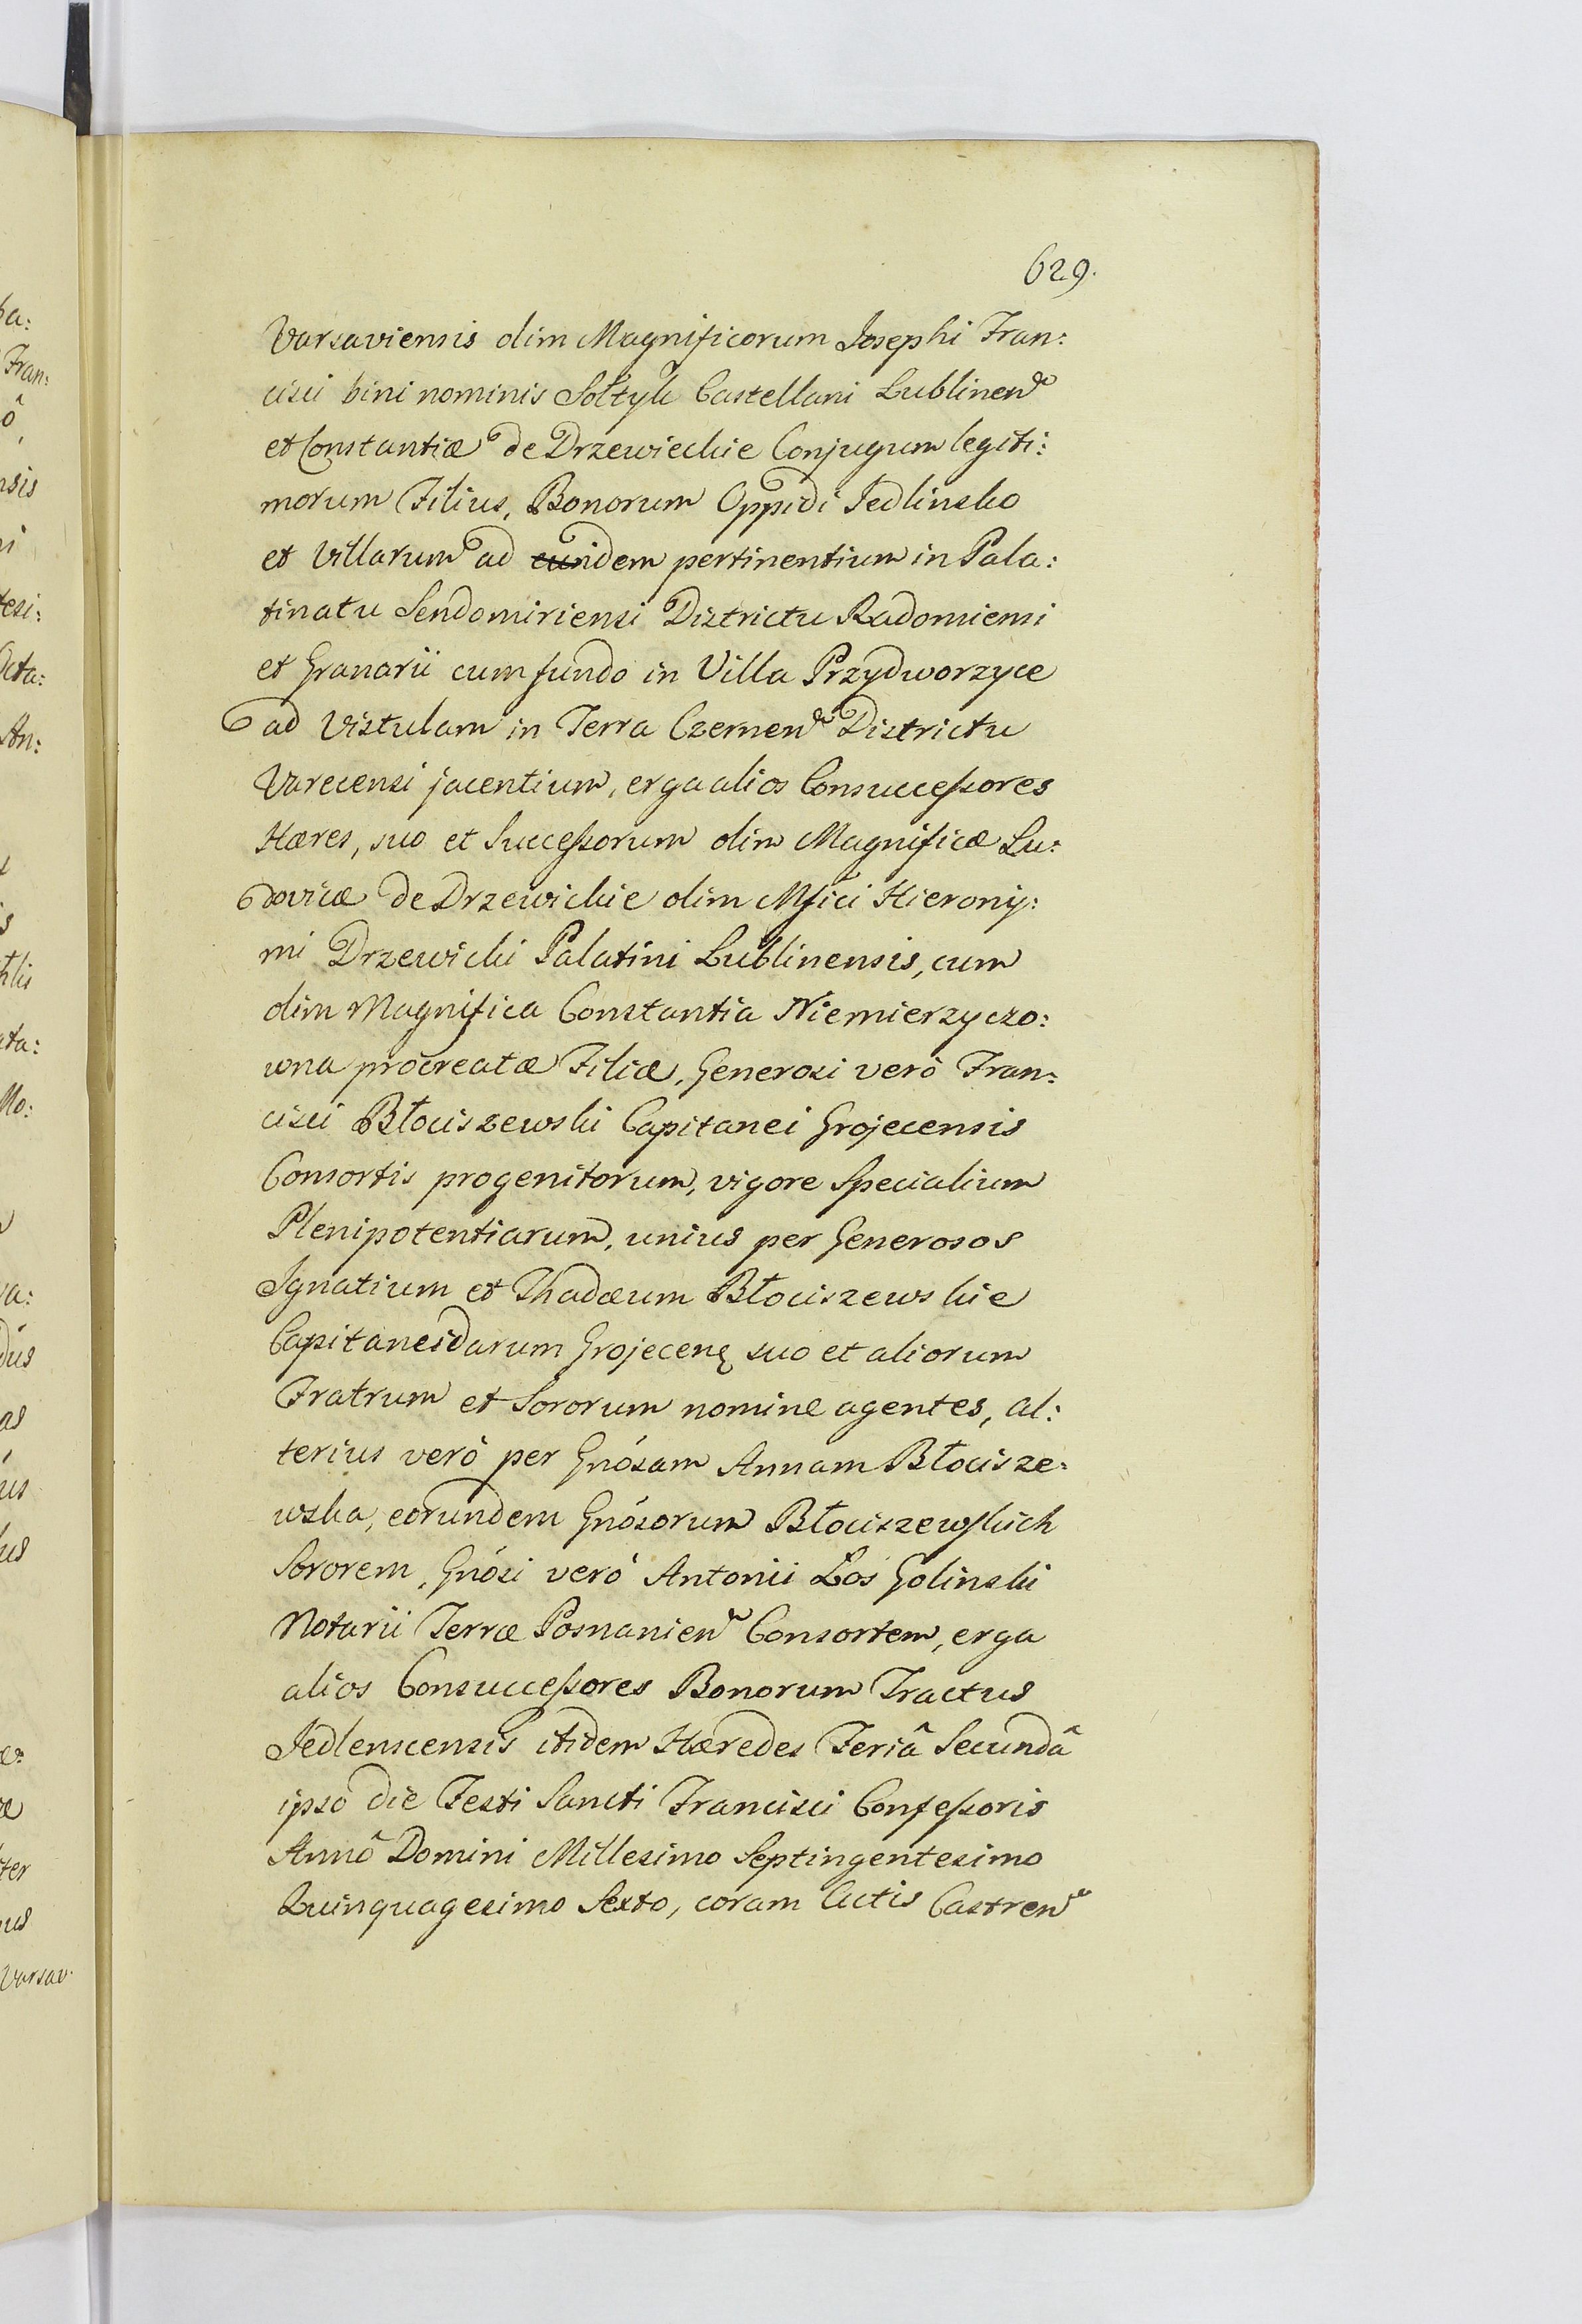 629.
Varsaviensis olim Magnificorum Josephi Fran:
cisci bini nominis Sołtyk Castellani Lublinen
et Constantiæ de Drzewieckie Conjugum legiti:
morum Filius, Bonorum Oppidi Jedlinsko
et Villarum ad idem pertinentium in Pala:
tinatu Sendomiriensi Districtu Radomiensi
et Granarii cum fundo in Villa Przydworzyce
ad Vistulam in Terra Czernen Districtu
Varecensi jacentium, erga alios Consuccessores
Hæres, suo et Successorum olim Magnificæ Lu:
dovicæ de Drzewickie olim Mfici Hierony:
mi Drzewicki Palatini Lublinensis, cum
olim Magnifica Constantia Niemierzyczo:
wna procreatæ Filiæ, Generosi verò Fran:
cisci Błociszewski Capitanei Grojecensis
Consortis progenitorum, vigore Specialium
Plenipotentiarum, unius per Generosos
Ignatium et Thadæum Błociszewskie
Capitaneidarum Grojecen suo et aliorum
Fratrum et Sororum nomine agentes, al:
terius verò per Gnósam Annam Błocisze:
wska, eorundem Gnósorum Błociszewskich
Sororem, Gnósi verò Antonii Łos Golinski
Notarii Terræ Posnanien Consortem, erga
alios Consuccessores Bonorum Tractus
Jedlenscensis itidem Hæredes Feriâ Secundâ
ipso die Festi Sancti Francisci Confessoris
Annô Domini Millesimo Septingentesimo
Quinquagesimo Sexto, coram Actis Castren